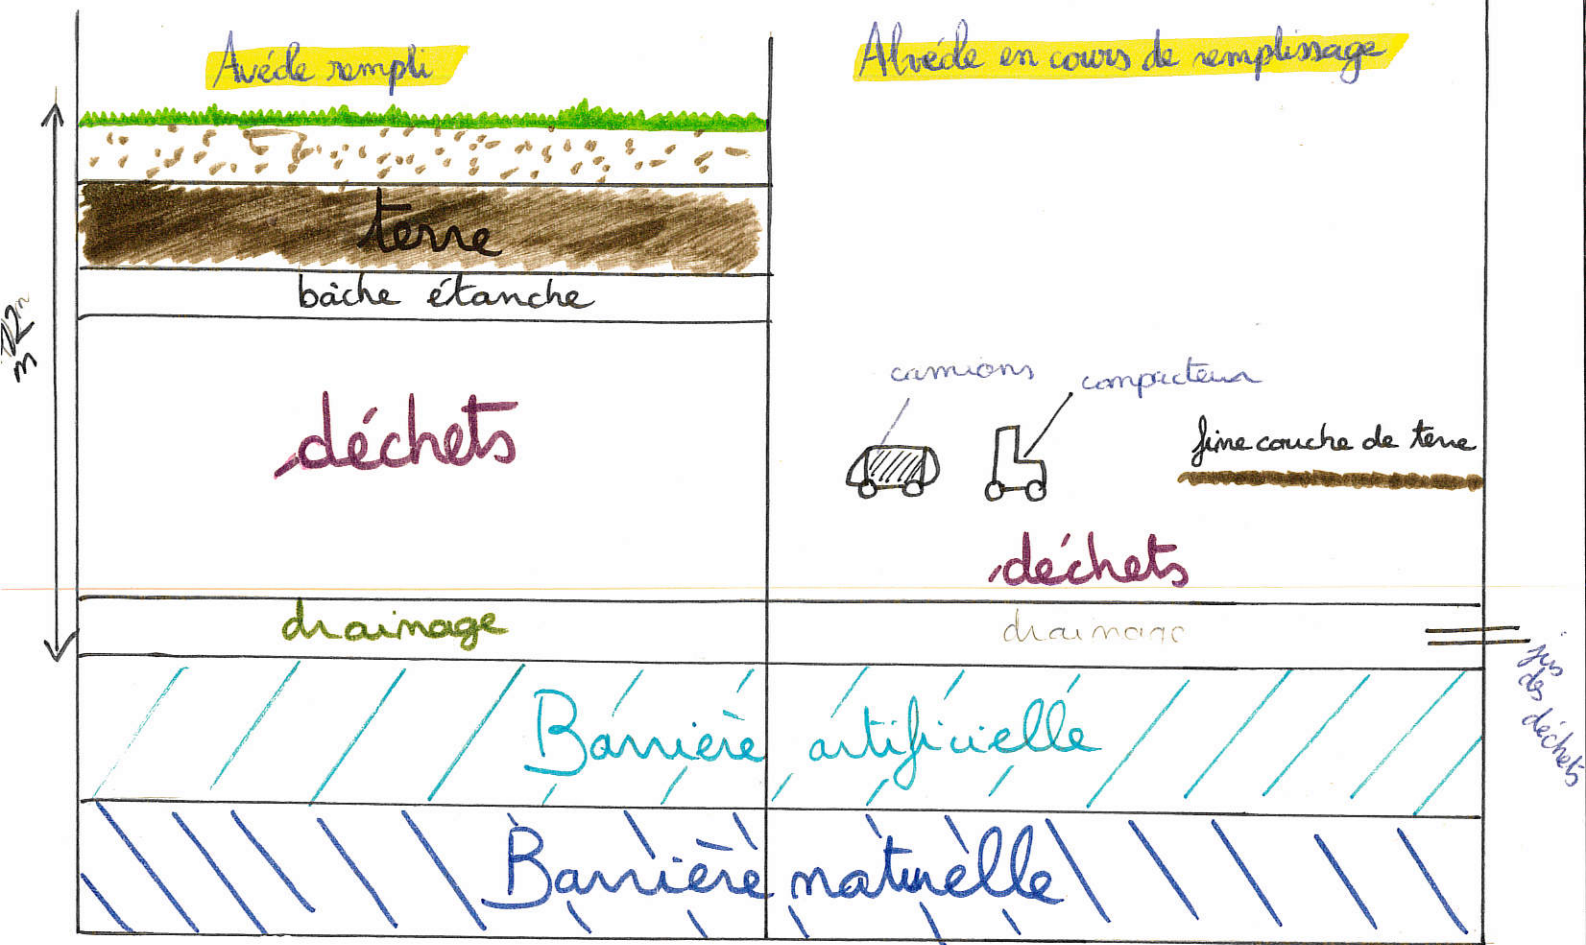 Avéole rempli
Alvéole en cours de remplissage
terre
bâche étanche
déchets
camions
compacteur
fine couche de terre
déchets
drainage
drainage
jus
des déchets
Barrière artificielle
Barrière naturelle